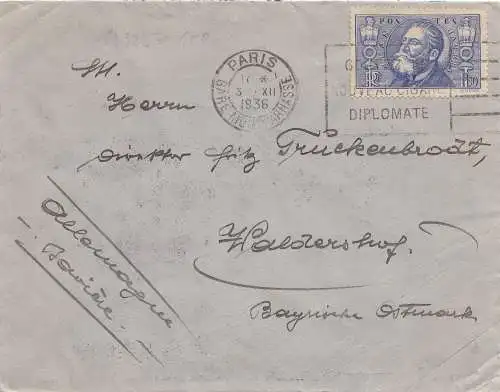 PARIS
GARE MONTPARNASSE
3 XII
1936
NOUVEAU CIGARE
DIPLOMATE
POSTES
1F50
M.
Herrn
Direktor Fritz Truckenbrodt,
Waldershof.
Bayrische Ostmark
Allemagne
- Bavière -